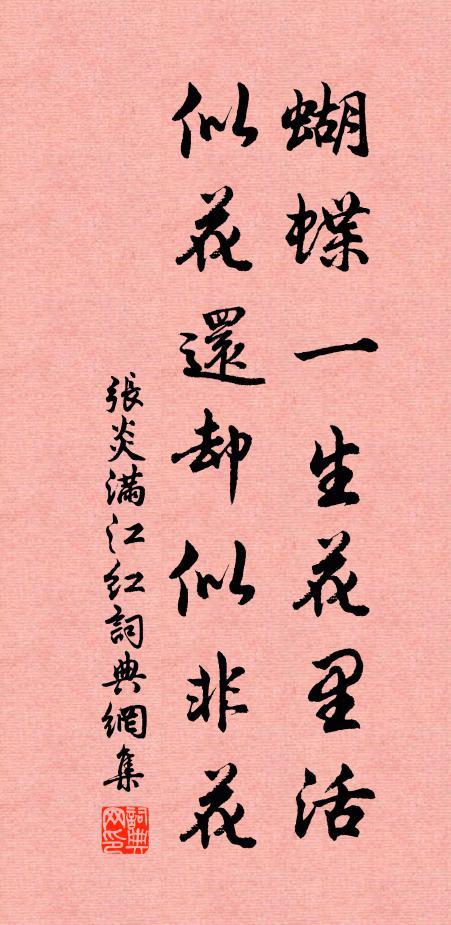 蝴蝶一生花里活
似花還却似非花
張炎滿江紅詞典網集
詞典网印